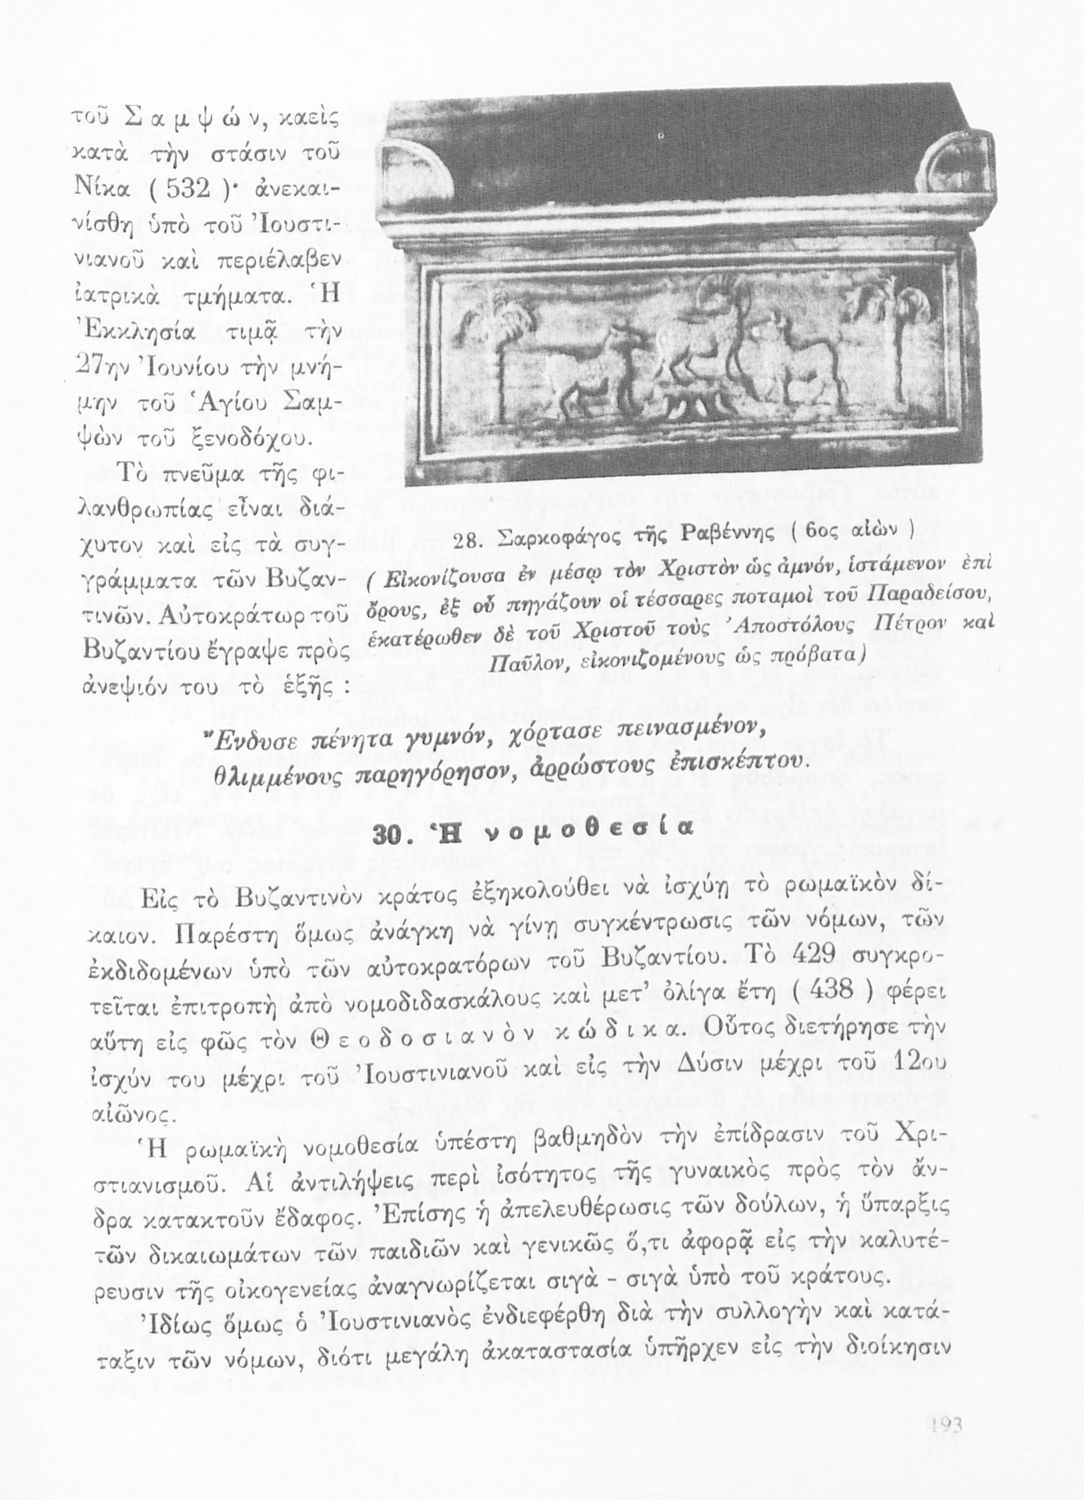 τοῦ Σ α μ ψ ώ ν, καεὶς
κατὰ τὴν στάσιν τοῦ
Νίκα ( 532 )· ἀνεκαι-
νίσθη ὑπὸ τοῦ Ἰουστι-
νιανοῦ καὶ περιέλαβεν
ἰατρικὰ τμήματα. Ἡ
Ἐκκλησία τιμᾷ τὴν
27ην Ἰουνίου τὴν μνή-
μην τοῦ Ἁγίου Σαμ-
ψὼν τοῦ ξενοδόχου.
Τὸ πνεῦμα τῆς φι-
λανθρωπίας εἶναι διά-
χυτον καὶ εἰς τὰ συγ-
γράμματα τῶν Βυζαν-
τινῶν. Αὐτοκράτωρ τοῦ
Βυζαντίου ἔγραψε πρὸς
ἀνεψιόν του τὸ ἑξῆς :
28. Σαρκοφάγος τῆς Ραβέννης ( 6ος αἰὼν )
( Εἰκονίζουσα ἐν μέσῳ τὸν Χριστὸν ὡς ἀμνόν, ἱστάμενον ἐπὶ
ὄρους, ἐξ οὗ πηγάζουν οἱ τέσσαρες ποταμοὶ τοῦ Παραδείσου,
ἑκατέρωθεν δὲ τοῦ Χριστοῦ τοὺς Ἀποστόλους Πέτρον καὶ
Παῦλον, εἰκονιζομένους ὡς πρόβατα)
Ἔνδυσε πένητα γυμνόν, χόρτασε πεινασμένον,
θλιμμένους παρηγόρησον, ἀρρώστους ἐπισκέπτου.
30. Ἡ ν ο μ ο θ ε σ ί α
Εἰς τὸ Βυζαντινὸν κράτος ἐξηκολούθει νὰ ἰσχύῃ τὸ ρωμαϊκὸν δί-
καιον. Παρέστη ὅμως ἀνάγκη νὰ γίνῃ συγκέντρωσις τῶν νόμων, τῶν
ἐκδιδομένων ὑπὸ τῶν αὐτοκρατόρων τοῦ Βυζαντίου. Τὸ 429 συγκρο-
τεῖται ἐπιτροπὴ ἀπὸ νομοδιδασκάλους καὶ μετ’ ὀλίγα ἔτη ( 438 ) φέρει
αὕτη εἰς φῶς τὸν Θ ε ο δ ο σ ι α ν ὸ ν κ ώ δ ι κ α. Οὗτος διετήρησε τὴν
ἰσχύν του μέχρι τοῦ Ἰουστινιανοῦ καὶ εἰς τὴν Δύσιν μέχρι τοῦ 12ου
αἰῶνος.
Ἡ ρωμαϊκὴ νομοθεσία ὑπέστη βαθμηδὸν τὴν ἐπίδρασιν τοῦ Χρι-
στιανισμοῦ. Αἱ ἀντιλήψεις περὶ ἰσότητος τῆς γυναικὸς πρὸς τὸν ἄν-
δρα κατακτοῦν ἔδαφος. Ἐπίσης ἡ ἀπελευθέρωσις τῶν δούλων, ἡ ὕπαρξις
τῶν δικαιωμάτων τῶν παιδιῶν καὶ γενικῶς ὅ,τι ἀφορᾷ εἰς τὴν καλυτέ-
ρευσιν τῆς οἰκογενείας ἀναγνωρίζεται σιγὰ - σιγὰ ὑπὸ τοῦ κράτους.
Ἰδίως ὅμως ὁ Ἰουστινιανὸς ἐνδιεφέρθη διὰ τὴν συλλογὴν καὶ κατά-
ταξιν τῶν νόμων, διότι μεγάλη ἀκαταστασία ὑπῆρχεν εἰς τὴν διοίκησιν
193